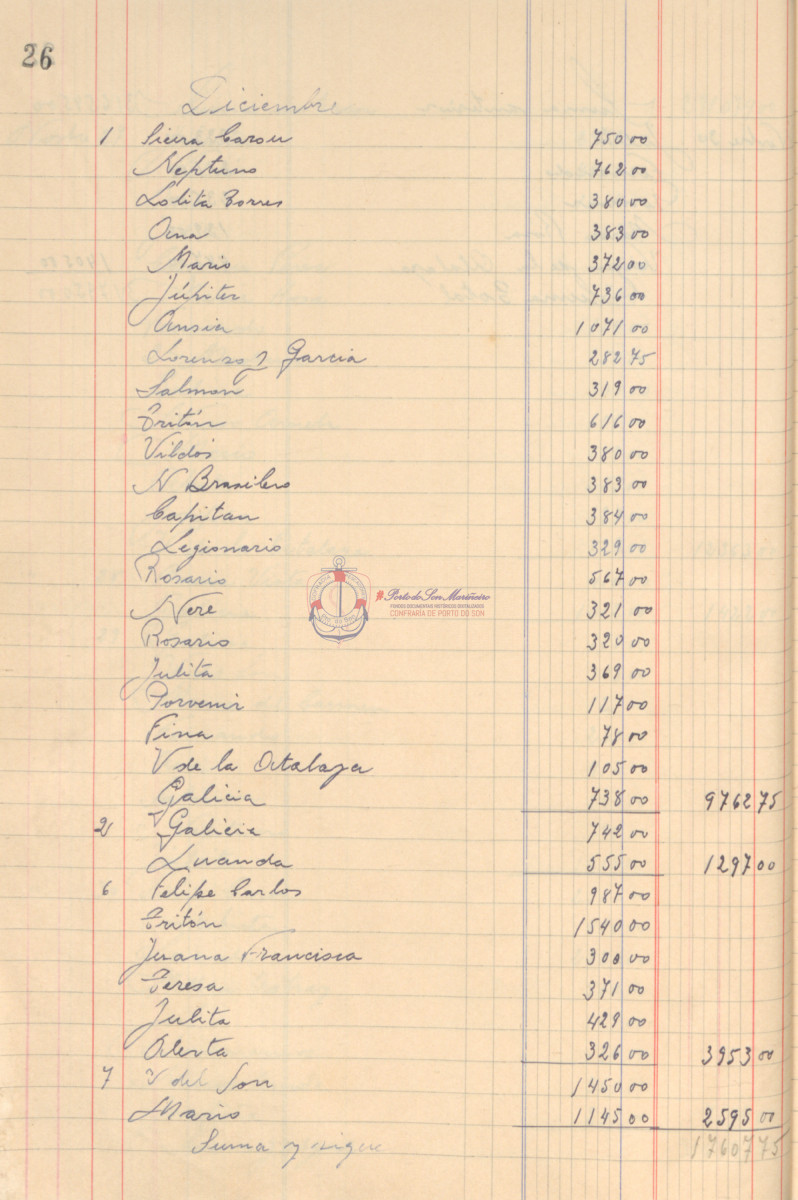 26
Diciembre
1 Sieira Carou 750 00
Neptuno 762 00
Lolita Torres 380 00
Ana 383 00
Mario 372 00
Júpiter 736 00
Ansia 1071 00
Lorenzo y Garcia 282 75
Salmon 319 00
Tritón 616 00
380 00
N Brasilero 383 00
Capitan 384 00
Legionario 329 00
Rosario 567 00
Nere 321 00
Rosario 320 00
Julita 369 00
Porvenir 117 00
Fina 78 00
V de la Atalaya 105 00
Galicia 738 00 9762 75
2 Galicia 742 00
Luanda 555 00 1297 00
6 Felipe Carlos 987 00
Tritón 1540 00
Juana Francisca 300 00
Teresa 371 00
Julita 429 00
Alerta 326 00 3953 00
7 V del Son 1450 00
Mario 1145 00 2595 00
Suma y sigue 17607 75
Porto do Son Mariñeiro
FONDOS DOCUMENTAIS HISTÓRICOS DIXITALIZADOS
CONFRARÍA DE PORTO DO SON